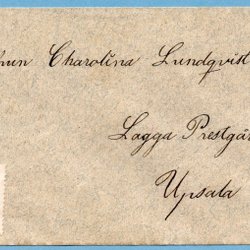 hun Charolina Lundqvist
Lagga Prestgår
Upsala